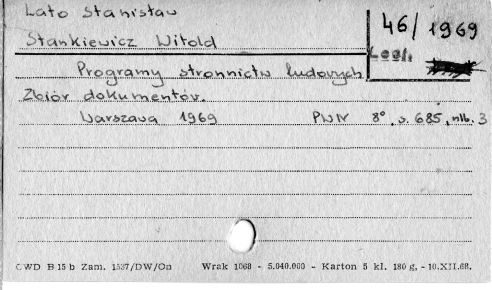 Lato Stanisław
46/1969
Stankiewicz Witold
Programy stronnictw ludowych
Zbiór dokumentów.
Warszawa 1969 PWN 8°, s. 685, nlb. 3
CWD B 15 b Zam. 1537/DW/On Wrak 1068 - 5.040.000 - Karton 5 kl. 180 g, - 10.XII.68.